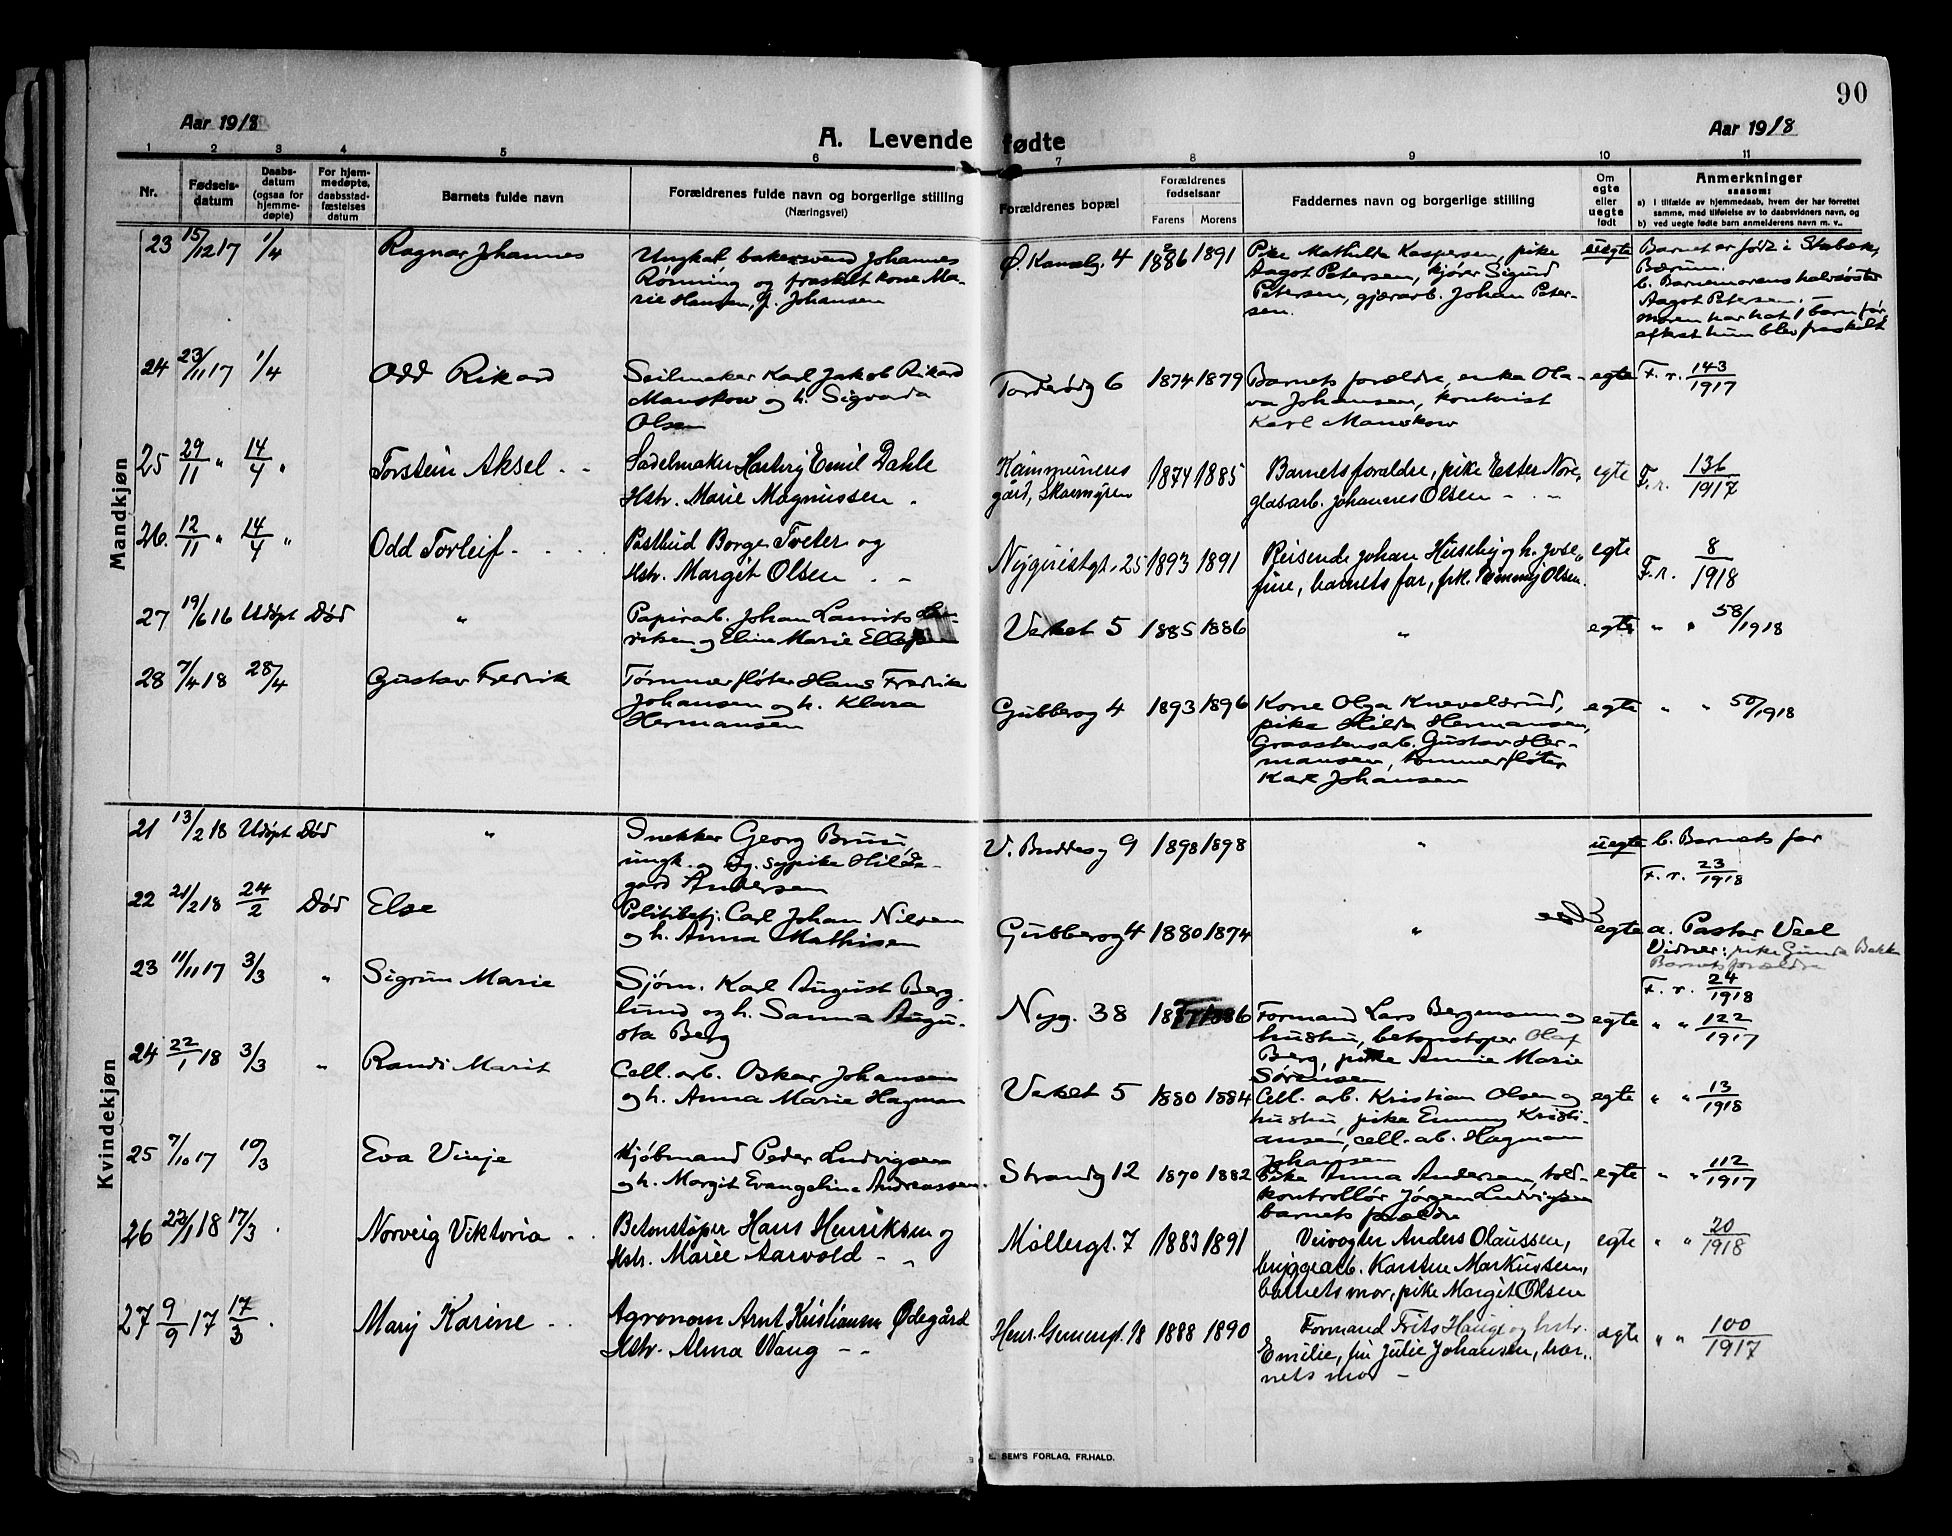 90
Aar 1918
A. Levende fødte
Aar 1918
1 2 3 4 5 6 7 8 9 10 11
Nr.
Fødsels-
datum
Daabs-
datum
(ogsaa for
hjemme-
døpte)
For hjem-
medøpte,
daabsstad-
fæstelses
datum
Barnets fulde navn
Forældrenes fulde navn og borgerlige stilling
(Næringsvei)
Forældrenes bopæl
Forældrenes
fødselsaar
Farens Morens
Faddernes navn og borgerlige stilling
Om
egte
eller
uegte
født
Anmerkninger
saasom:
a) I tilfælde av hjemmedaab, hvem der har forrettet
samme, med tilføielse av to daabsvidners navn, og
b) ved uegte fødte barn anmelderens navn m. v.
Mandkjøn
23 15/12 17 1/4 Ragnar Johannes
Ungkal bakersvend Johannes
Rønning og fraskilt kone Ma-
rie Hansen, f. Johansen
Ø. Kanalg. 4 1886 1891
Pike Mathilda Kaspersen, pike
Aagot Petersen, kjører Sigurd
Petersen, gjærarb. Johan Peter-
sen.
uegte
Barnet er født i Stabæk,
Bærum.
b. Barnemorens halvsøster
Aagot Petersen.
Moren har hat 1 barn før,
efterat hun blev fraskilt
24 23/11 17 1/4 Odd Rikard
Seilmaker Karl Jakob Rikard
Manskow og h. Sigvarda
Olsen
Torderødg 6 1874 1879
Barnets forældre, enke Ola-
va Johansen, kontorist
Karl Manskow
egte F. r. 143/1917
25 29/11 " 14/4 " Torstein Aksel
Sadelmaker Hartvig Emil Dahle
Hstr. Marie Magnussen
Kommunens
gård, Skarmyren 1874 1885
Barnets forældre, pike Ester Nore,
glasarb. Johannes Olsen
egte F. r. 136/1917
26. 12/11 " 14/4 " Odd Torleif
Postbud Borge Tveter og
Hstr. Margit Olsen
Nyquistgt. 25 1893 1891
Reisende Johan Huseby og h. Jose-
fine, barnets far, frk. Rommy Olsen
egte F. r. 8/1918
27 19/6 16 Udøpt Død "
Papirarb. Johan Laurits
og Eline Marie
Verket 5 1885 1886 " egte " " 58/1918
28 7/4 18 28/4 Gustav Fredrik
Tømmerfløter Hans Fredrik
Johansen og h. Klara
Hermansen
Gubberog 4 1893 1896
Kone Olga Kneveldsrud,
pike Hilda Hermansen,
Graastensarb. Gustav Her-
mansen, tømmerfløter
Karl Johansen
egte " " 50/1918
Kvindekjøn
21 13/2 18 Udøpt Død "
Snekker Georg Bruu
ungk. og ug. sypike Hilde-
gard Andersen
V. Buddesg 9 1898 1898 " uegte
b. Barnets far
F. r. 23/1918
22 21/2 18 24/2 Død Else
Politibetj. Carl Johan Nilsen
og h. Anna Mathisen
Gubberog 4 1880 1874 " egte
a. Pastor Veel
Vidner: pike Gunda Bakke
Barnets forældre
F. r. 24/1918
23 11/11 17 3/3 " Sigrun Marie
Sjøm. Karl August Berg-
lund og h. Sanna Augu-
sta Berg
Nyg. 38 1886
Formand Lars Bergmann og
hustru, betonstøper Olaf
Berg, pike Annie Marie
Sørensen
egte " " 122/1917
24 22/1 18 3/3 " Randi Marit
Cell. arb. Oskar Johansen
og h. Anna Marie Hagman
Verket 5 1880 1884
Cell. arb. Kristian Olsen og
hustru, pike Emmy Kristi-
ansen, cell. arb. Hagman
Johansen
egte " " 13/1918
25 7/10 17 10/3 Eva Vinje
Kjøbmand Peder Ludvigsen
og h. Margit Evangeline Andreassen
Strandg 12 1870 1882
Pike Anna Andersen, told-
kontrollør Jørgen Ludvigsen
barnets forældre
egte " " 112/1917
26 22/1 18 17/3 Norveig Viktoria
Betonstøper Hans Henriksen og
Hstr. Marie Aarvold
Møllergt. 7 1883 1891
Veivogter Anders Olaussen,
bryggearb. Karsten Markussen,
barnets mor, pike Margit Olsen
egte " " 20/1918
27 9/9 17 17/3 Mary Karine
Agronom Arnt Kristiansen Ødegård
Hstr. Alma Wang
Henr. Gernergt. 18 1888 1890
Formand Frits Hauge og hstr.
Emilie, fru Julie Johansen, bar-
nets mor
ægte " " 100/1917
E. SEM'S FORLAG, FR.HALD.